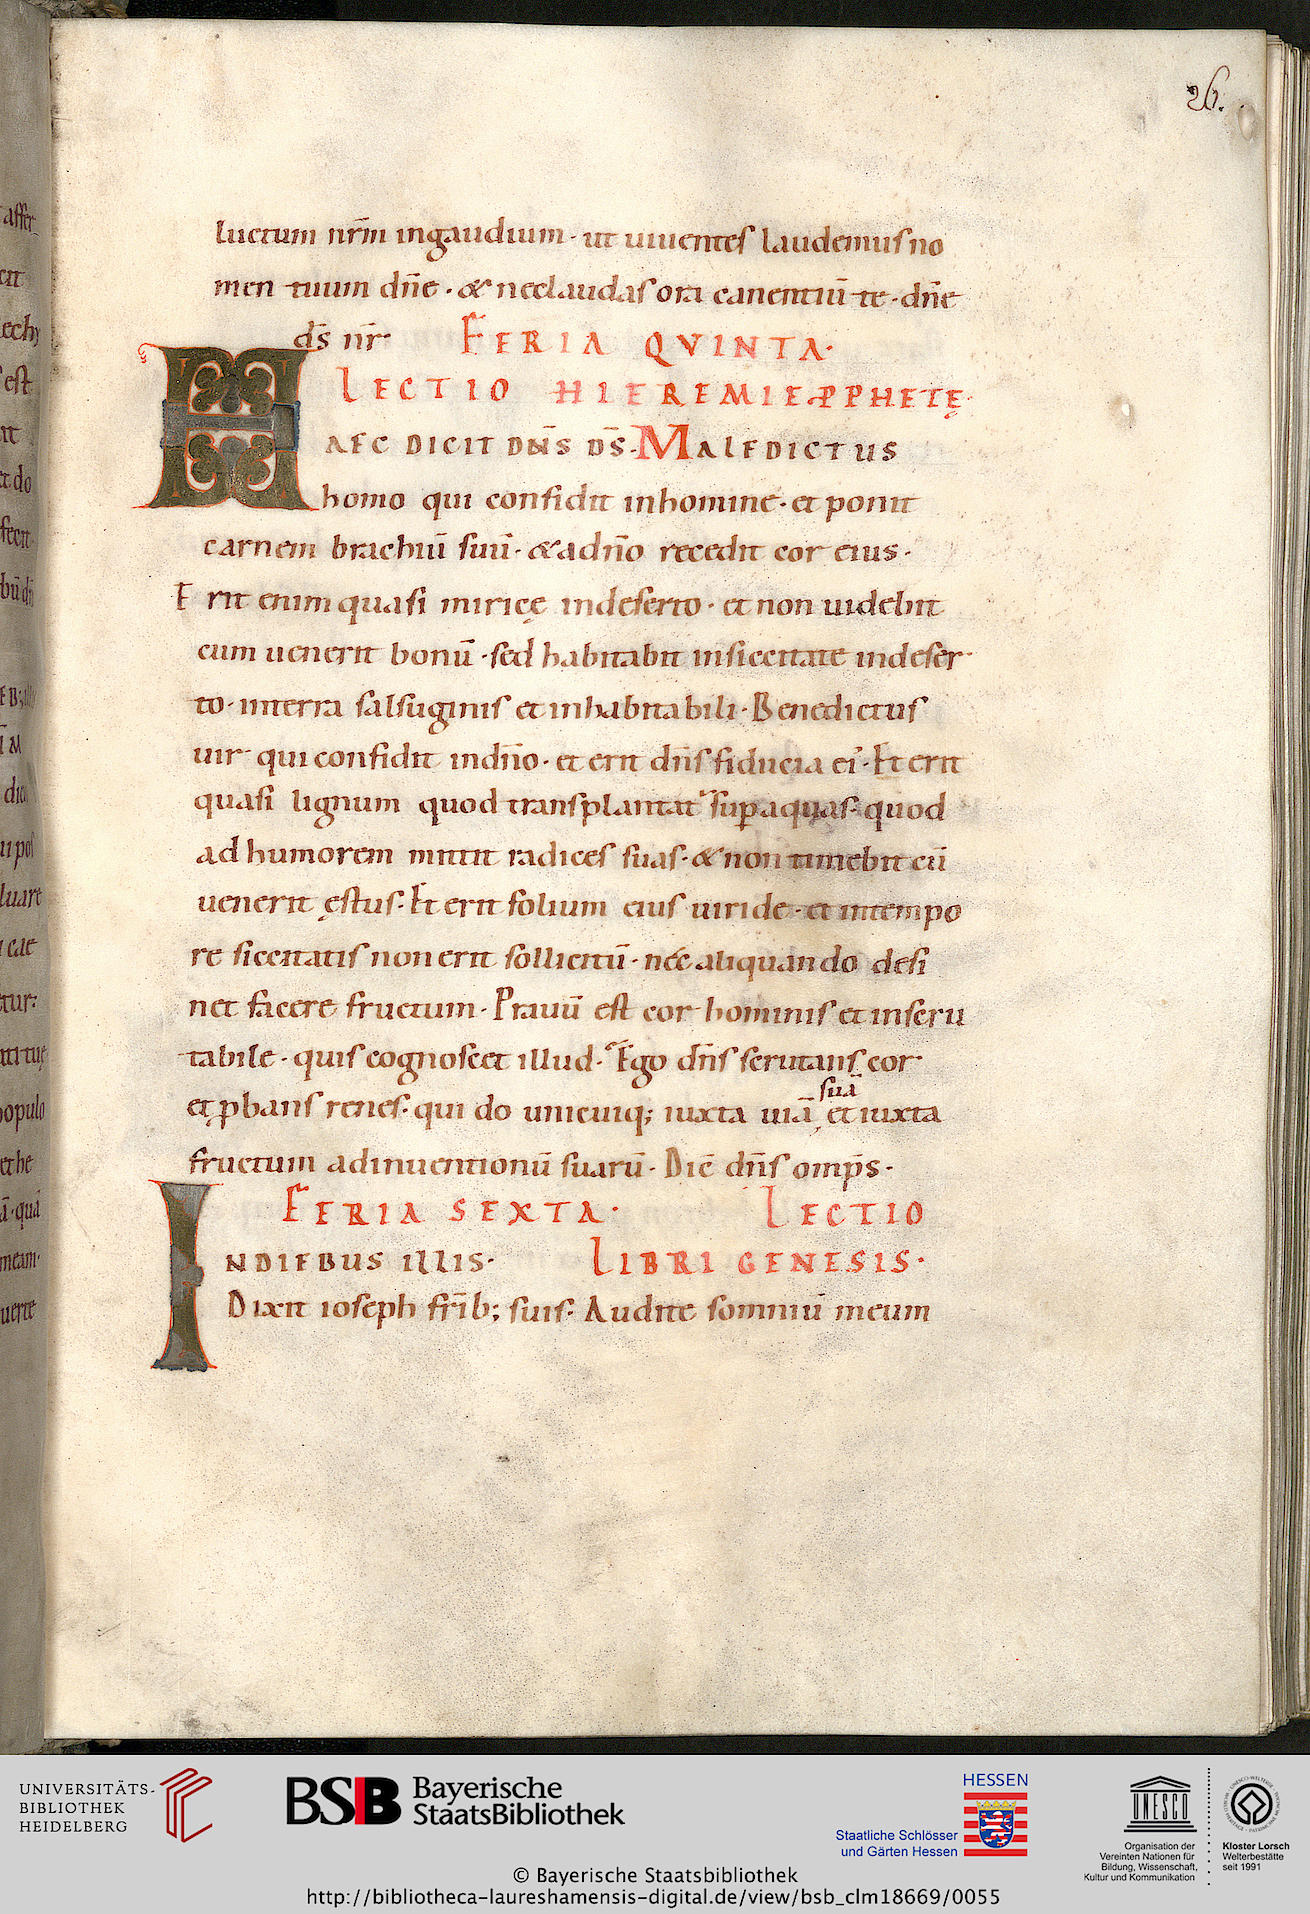 26.
luctum nr̄m ingaudium · ut uiuentes laudemus no
men tuum dn̄e · & necłaudas ora canentiū te · dn̄e
ds̄ nr̄ · FERIA QVINTA ·
LECTIO HIEREMIE PPHETĘ ·
HAEC DICIT DN̄S DS̄ · MALEDICTUS
homo qui confidit inhomine · et ponit
carnem brachiū suū · & adn̄o recedit cor eius ·
Erit enim quasi miricę indeserto · et non uidebit
cum uenerit bonū · sed habitabit insiccitate indeser
to · interra salsuginis et inhabitabili · Benedictus
uir qui confidit indn̄o · et erit dn̄s fiducia ei' · Et erit
quasi lignum quod transplantat' sup̄ aquas · quod
ad humorem mittit radices suas · & non timebit cū
uenerit ęstus · Et erit folium eius uiride · et intempo
re siccitatis non erit sollicitū · néc aliquando desi
net facere fructum · Prauū est cor hominis et inscru
tabile · quis cognoscet illud · Ego dn̄s scrutans cor
et ꝓbans renes · qui do unicuiq; iuxta uiā suā et iuxta
fructum adinuentionū suarū · Dic̄ dn̄s omp̄s ·
FERIA SEXTA · LECTIO
INDIEBUS ILLIS · LIBRI GENESIS ·
Dixit ioseph fr̄ib; suis · Audite somniū meum
UNIVERSITÄTS-
BIBLIOTHEK
HEIDELBERG
BSB Bayerische
StaatsBibliothek
HESSEN
Staatliche Schlösser
und Gärten Hessen
UNESCO
Organisation der
Vereinten Nationen für
Bildung, Wissenschaft,
Kultur und Kommunikation
Kloster Lorsch
Welterbestätte
seit 1991
© Bayerische Staatsbibliothek
http://bibliotheca-laureshamensis-digital.de/view/bsb_clm18669/0055